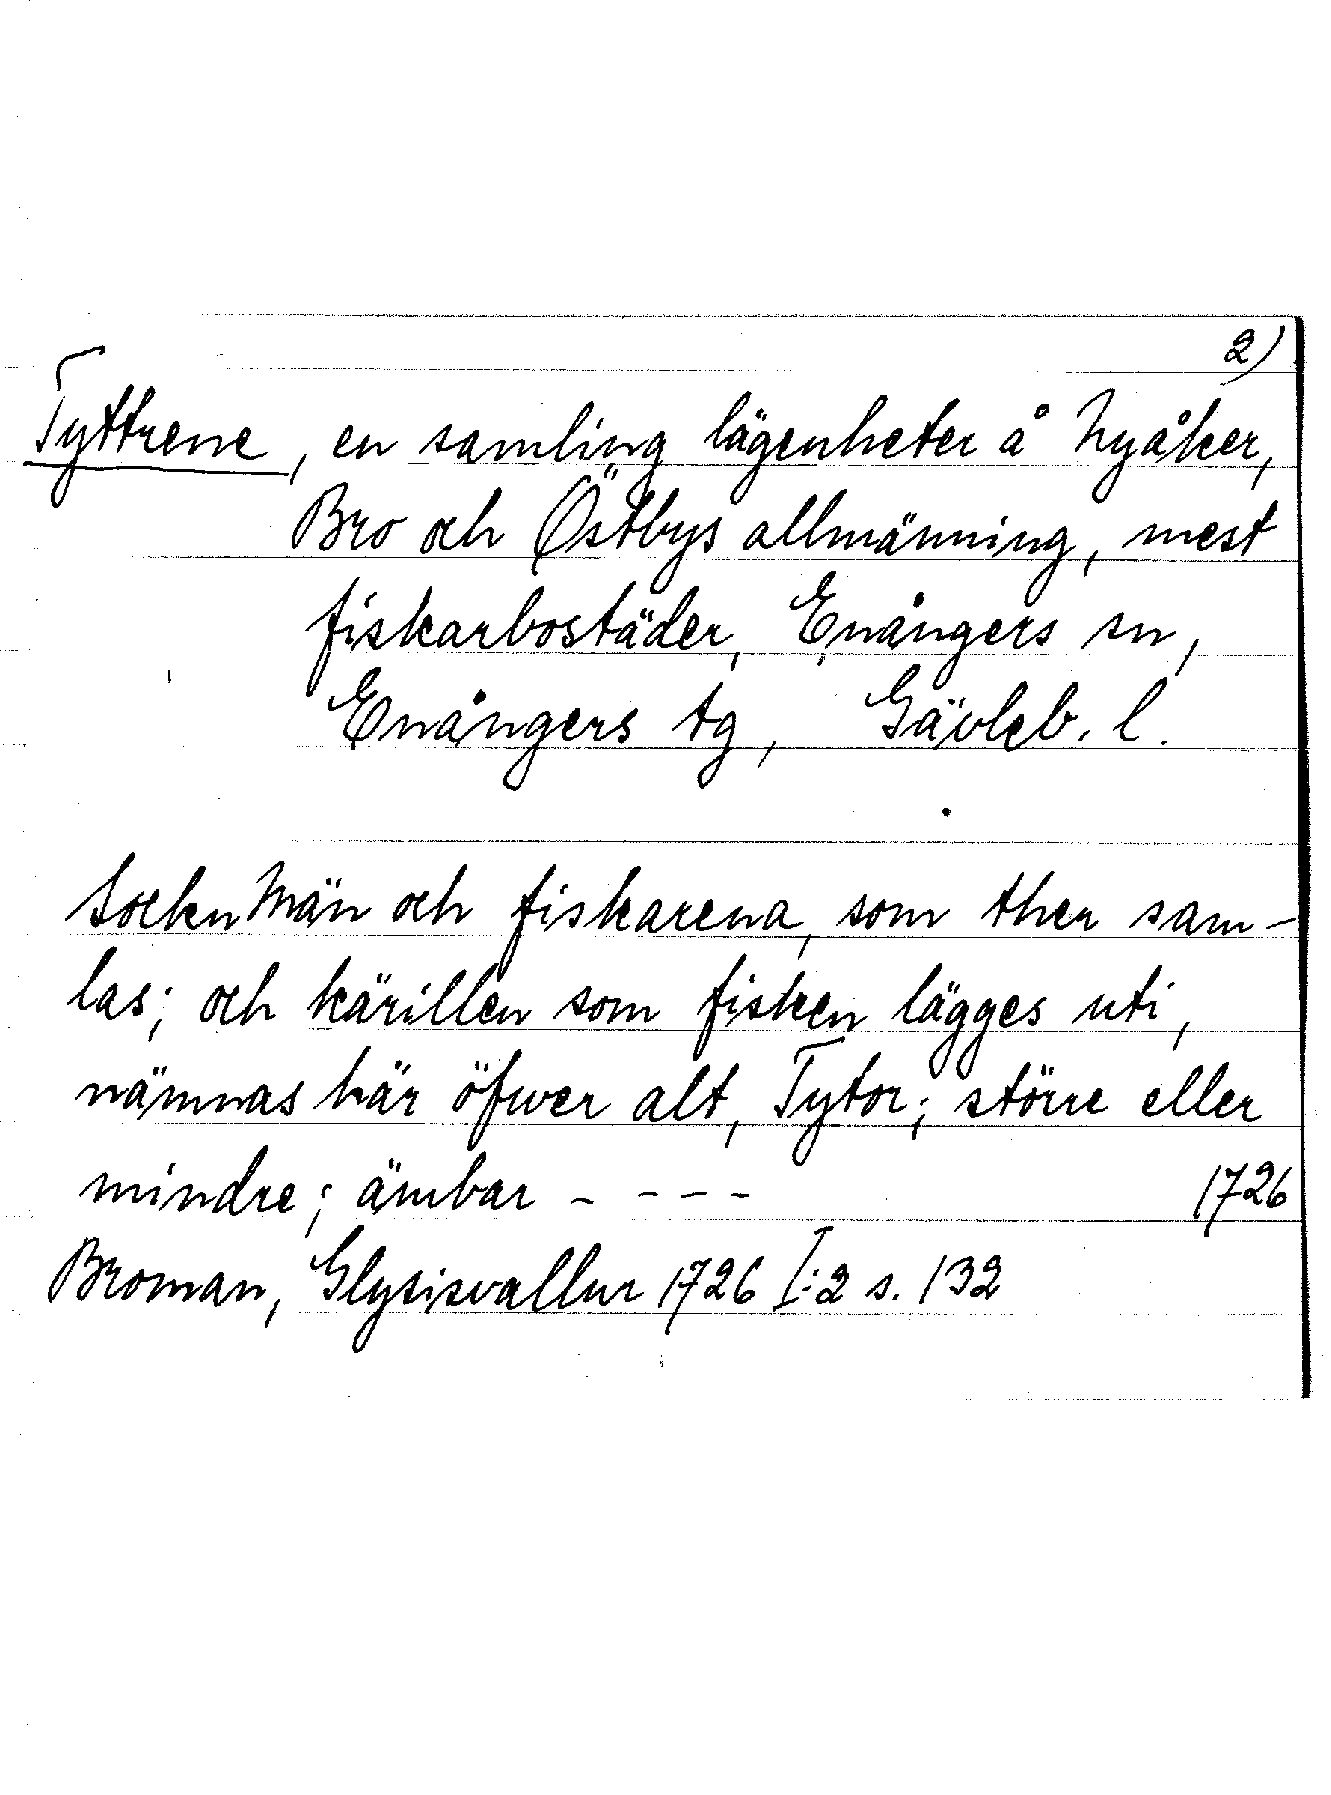 2)
Tyttrene, en samling lägenheter å Nyåker,
Bro och Östbys allmänning, mest
fiskarbostäder, Enångers sn,
Enångers tg, Gävleb. l.
SocknMän och fiskarena, som ther sam-
las; och kärillen som fisken lägges uti,
nämnas här öfwer alt, Tytor; större eller
mindre; ämbar - - - - 1726
Broman, Glysisvallur 1726 I:2 s. 132